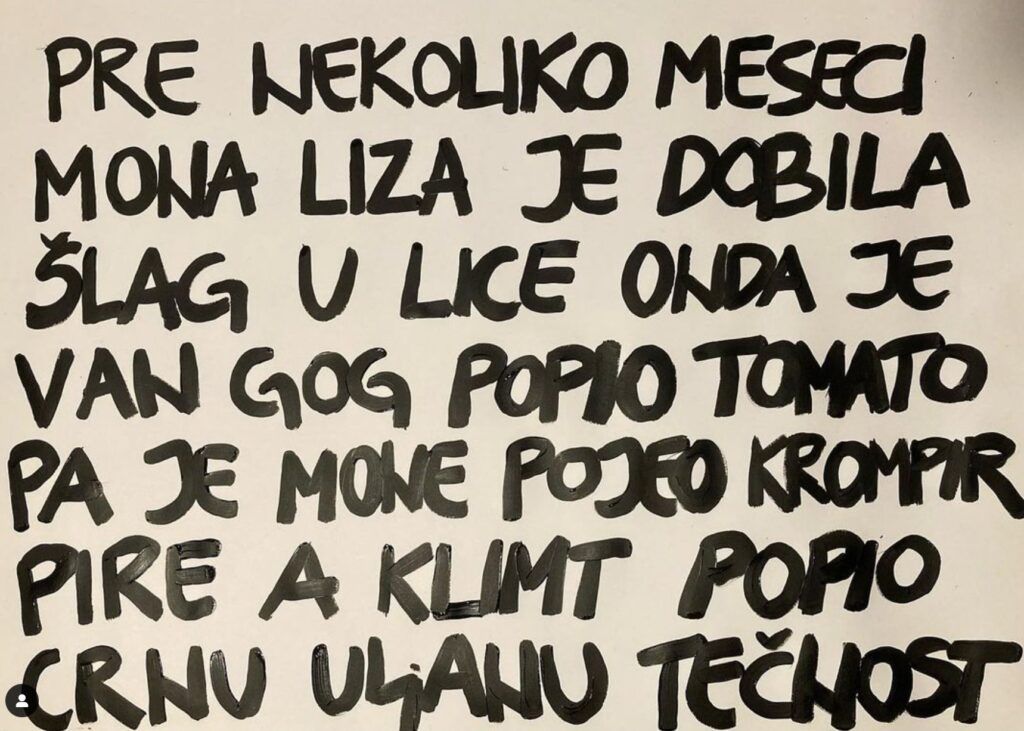 PRE NEKOLIKO MESECI
MONA LIZA JE DOBILA
ŠLAG U LICE ONDA JE
VAN GOG POPIO TOMATO
PA JE MONE POJEO KROMPIR
PIRE A KLIMT POPIO
CRNU ULjANU TEČNOST